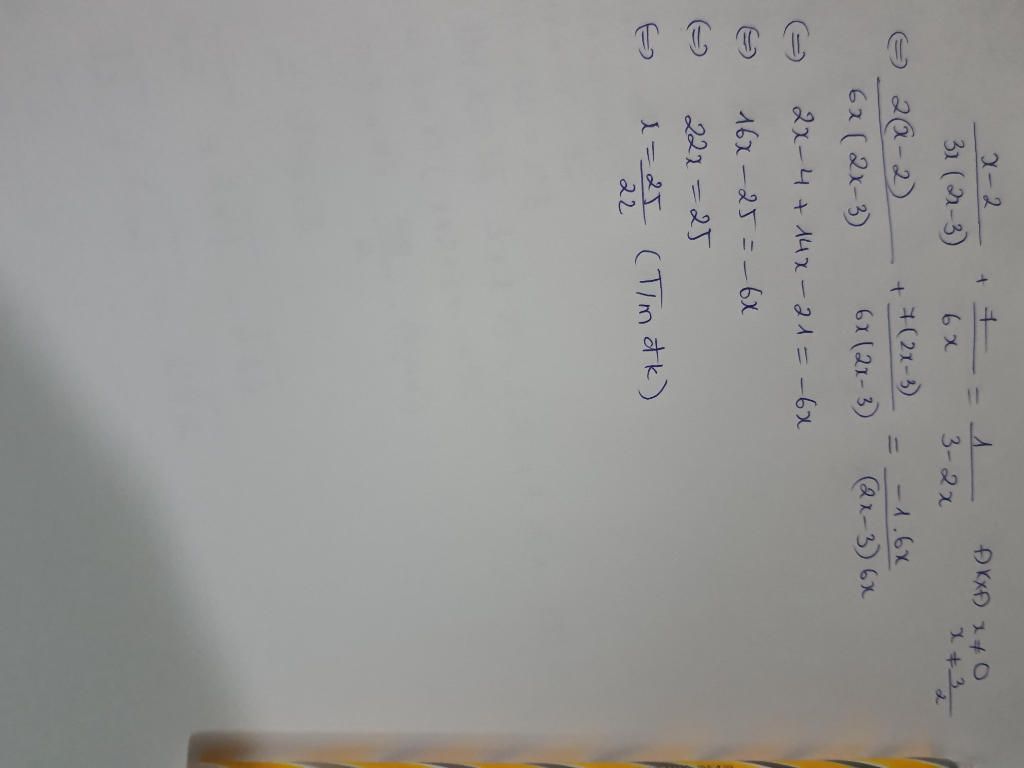 x-2/3x(2x-3) + 7/6x = 1/3-2x ĐKXĐ x≠0
x≠3/2
(=) 2(x-2)/6x(2x-3) + 7(2x-3)/6x(2x-3) = -1.6x/(2x-3)6x
(=) 2x-4+14x-21=-6x
(=) 16x-25=-6x
(=) 22x=25
(=) x=25/22 (T/m đk)